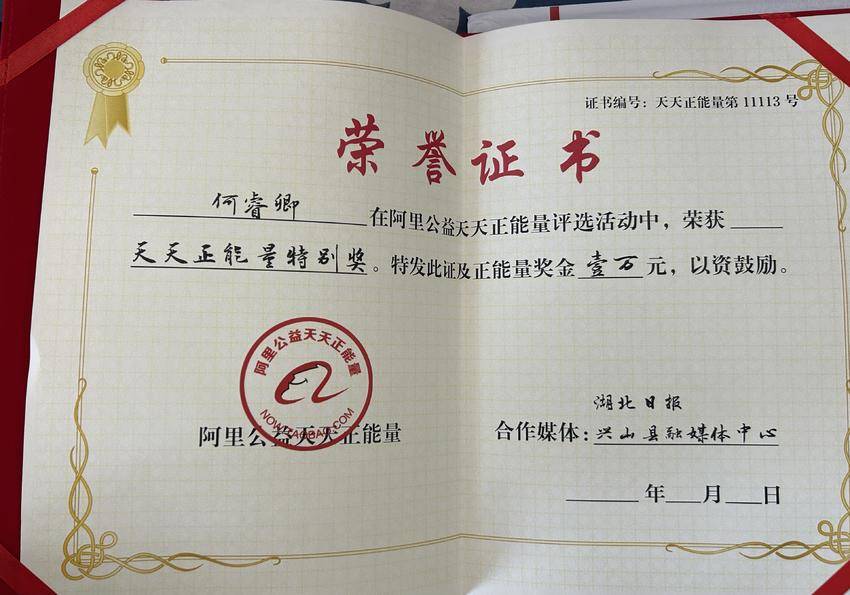 证书编号：天天正能量第 11113 号
荣誉证书
何睿卿 在阿里公益天天正能量评选活动中，荣获
天天正能量特别奖。特发此证及正能量奖金 壹万 元，以资鼓励。
阿里公益天天正能量
NOW.TAOBAO.COM
阿里公益天天正能量
湖北日报
合作媒体：兴山县融媒体中心
年 月 日